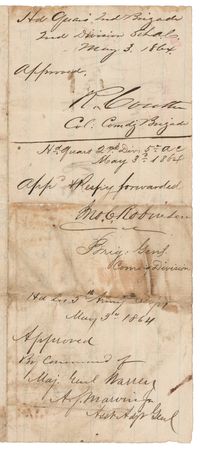 Hd Quars 2nd Brigade
2nd Division 5th A.C.
May 3. 1864
Approved.
R. Coulter
Col. Comdg Brigade
Hd. Quart 2nd Div: 5th A C
May 3d. 1864
Appd & Resply forwarded
Jno. C. Robinson
Brig. Genl.
Comdg Division
Hd Qrs 5th Army Corps
May 3rd 1864
Approved
By Command of
Maj. Genl Warren
A. S. Marvin Jr
Asst Adjt Genl